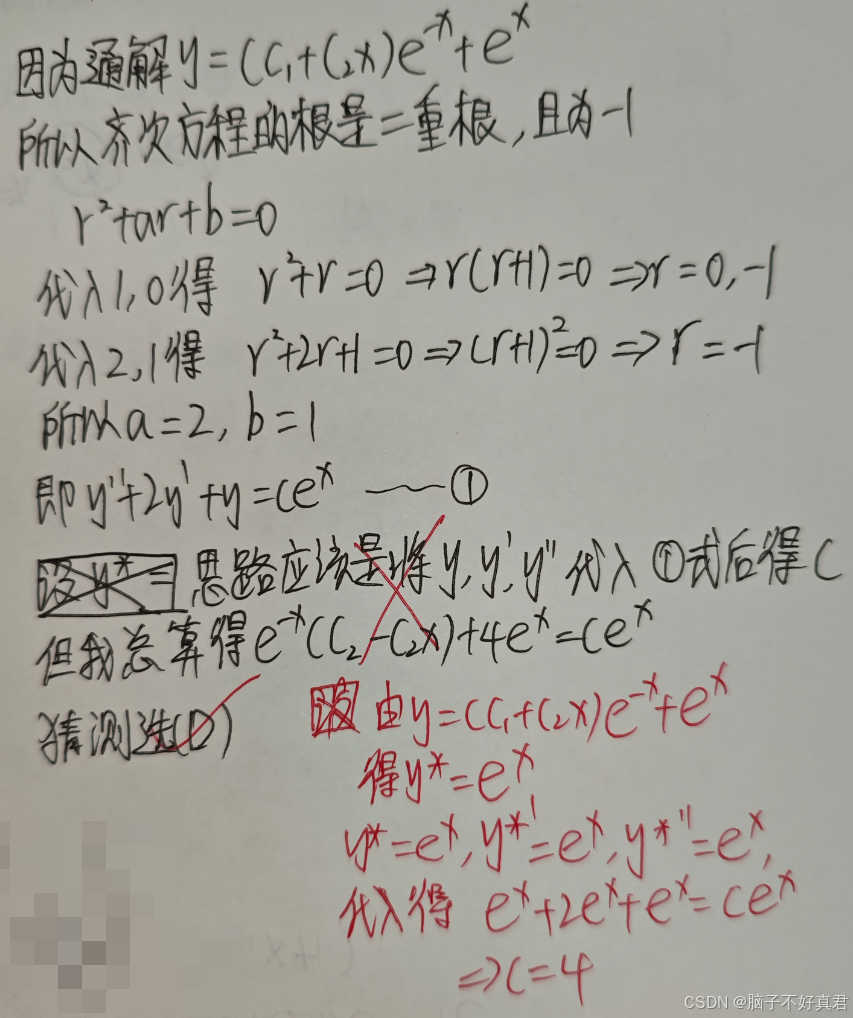 因为通解y=(C₁+C₂x)e⁻ˣ+eˣ
所以齐次方程的根是二重根,且为-1
r²+ar+b=0
代入1,0得 r²+r=0 ⇒r(r+1)=0 ⇒r=0,-1
代入2,1得 r²+2r+1=0 ⇒(r+1)²=0 ⇒r=-1
所以a=2, b=1
即y''+2y'+y=ceˣ ——①
设y*= 思路应该是将y,y',y''代入①式后得C
但我总算得e⁻ˣ(C₂-C₂x)+4eˣ=ceˣ
猜测选(D)
由y=(C₁+C₂x)e⁻ˣ+eˣ
得y*=eˣ
y*=eˣ,y*'=eˣ,y*''=eˣ,
代入得 eˣ+2eˣ+eˣ=ceˣ
⇒c=4
CSDN @脑子不好真君